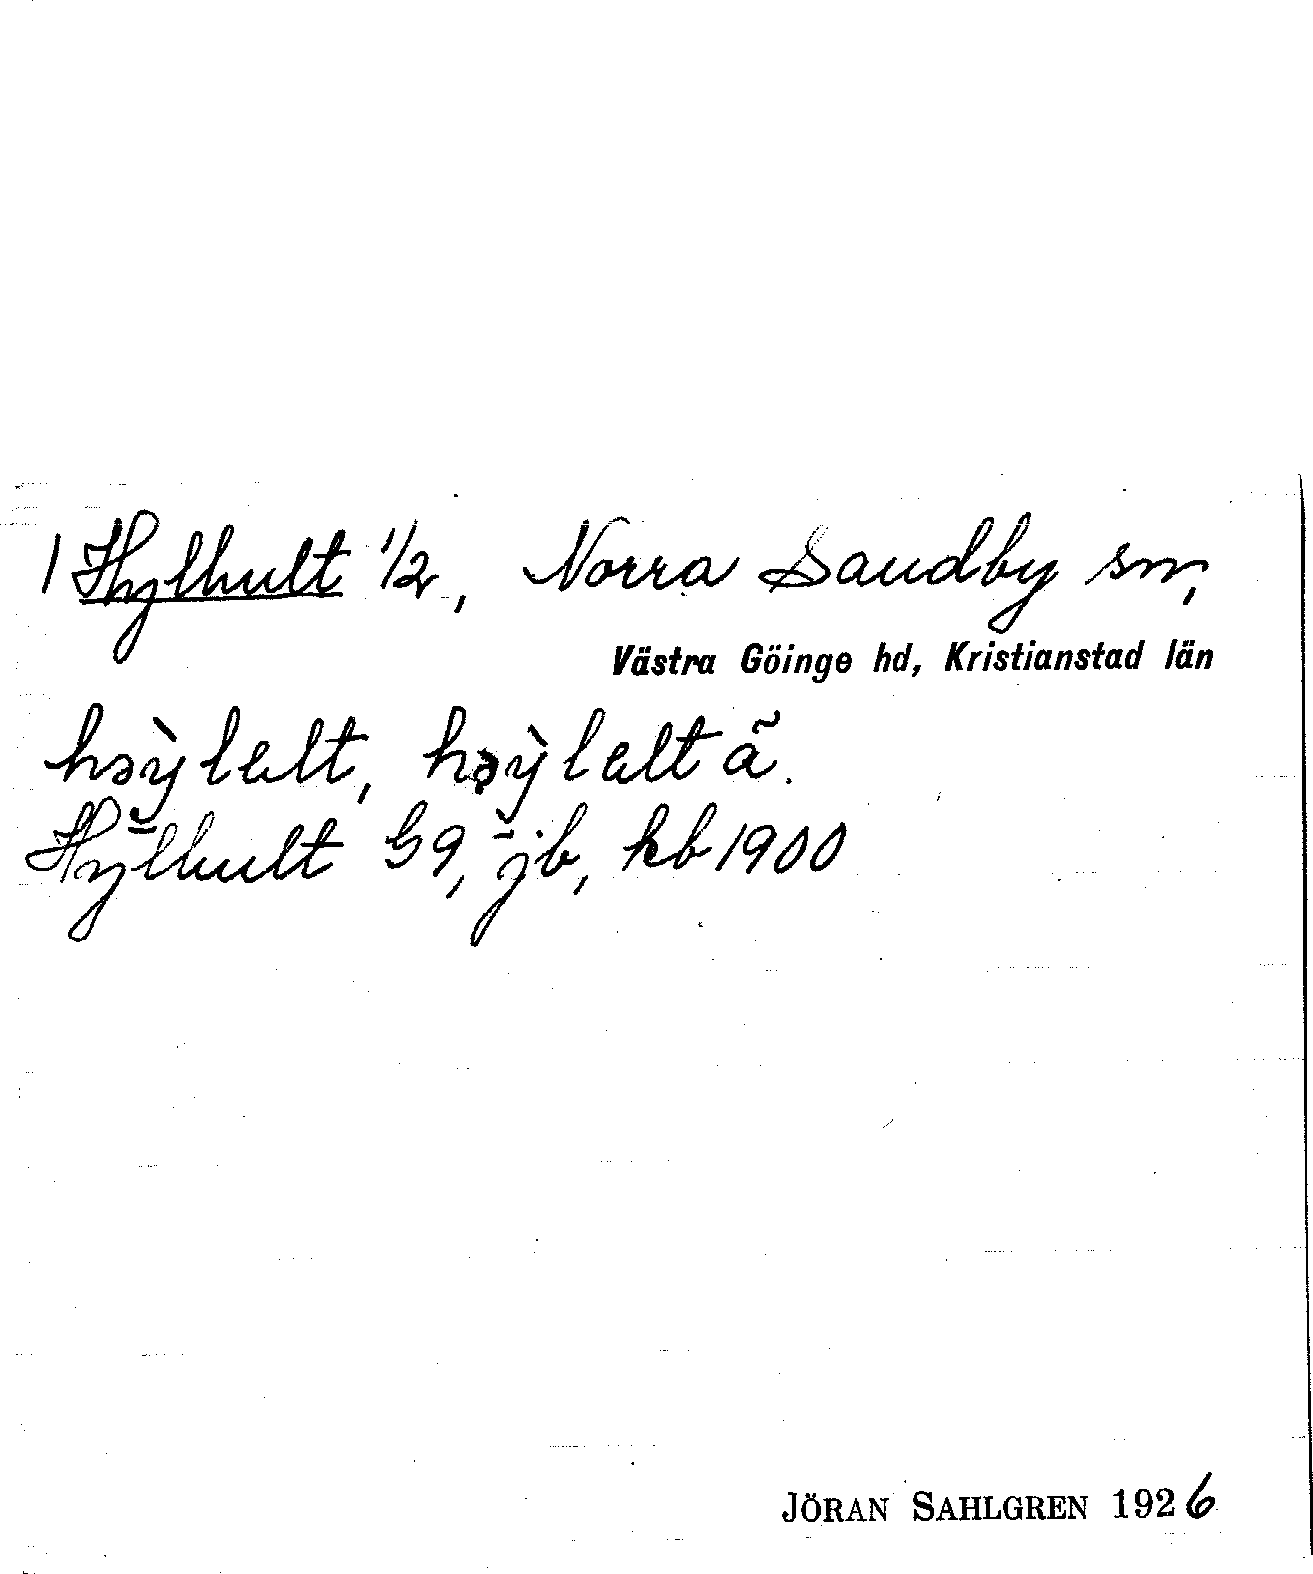 1 Hylhult 1/2, Norra Sandby sn,
Västra Göinge hd, Kristianstad län
həỳlelt, həỳleltã.
Hylhult G9, jb, kb 1900
JÖRAN SAHLGREN 1926